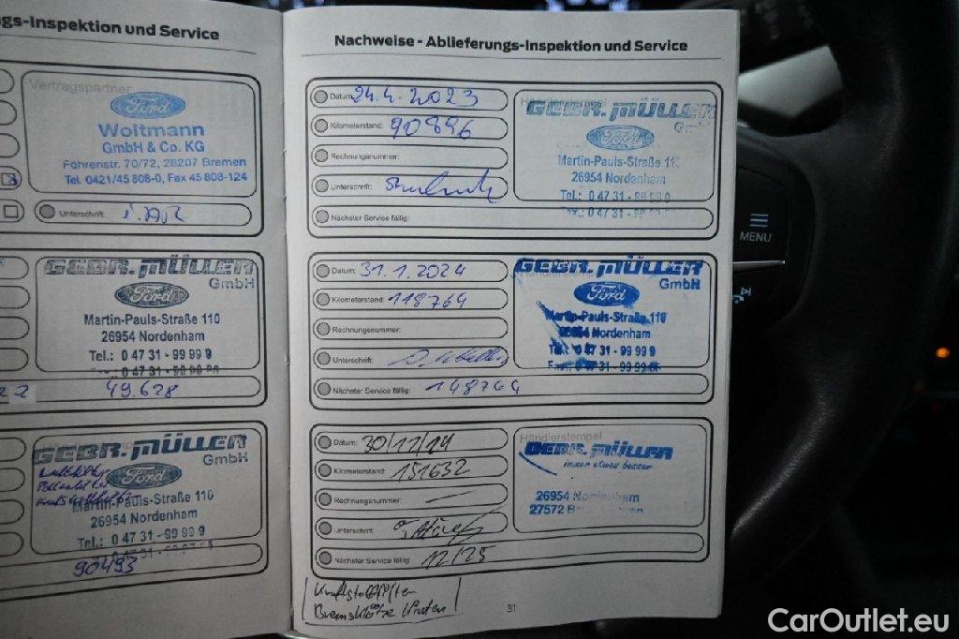 gs-Inspektion und Service
Vertragspartner
Ford
Woltmann
GmbH & Co. KG
Föhrenstr. 70/72, 28207 Bremen
Tel. 0421/45 808-0, Fax 45 808-124
Unterschrift:
GEBR. MÜLLER
GmbH
Ford
Martin-Pauls-Straße 110
26954 Nordenham
Tel.: 0 47 31 - 99 99 9
49.628
GEBR. MÜLLER
GmbH
Ford
Martin-Pauls-Straße 110
26954 Nordenham
Tel.: 0 47 31 - 99 99 9
90493
Nachweise - Ablieferungs-Inspektion und Service
Datum: 24.4.2023
Kilometerstand: 90896
Rechnungsnummer:
Unterschrift:
Nächster Service fällig:
GEBR. MÜLLER
Ford
Martin-Pauls-Straße 11
26954 Nordenham
Tel.: 0 47 31 - 99 99 9
Datum: 31.1.2024
Kilometerstand: 118764
Rechnungsnummer:
Unterschrift:
Nächster Service fällig: 148764
GEBR. MÜLLER
GmbH
Ford
Martin-Pauls-Straße 110
26954 Nordenham
Tel.: 0 47 31 - 99 99 9
Datum:
Kilometerstand: 151632
Rechnungsnummer:
Unterschrift:
Nächster Service fällig: 12/25
Händlerstempel
GEBR. MÜLLER
immer etwas besser
26954 Nordenham
27572
Bremsklötze hinten
31
MENU
CarOutlet.eu